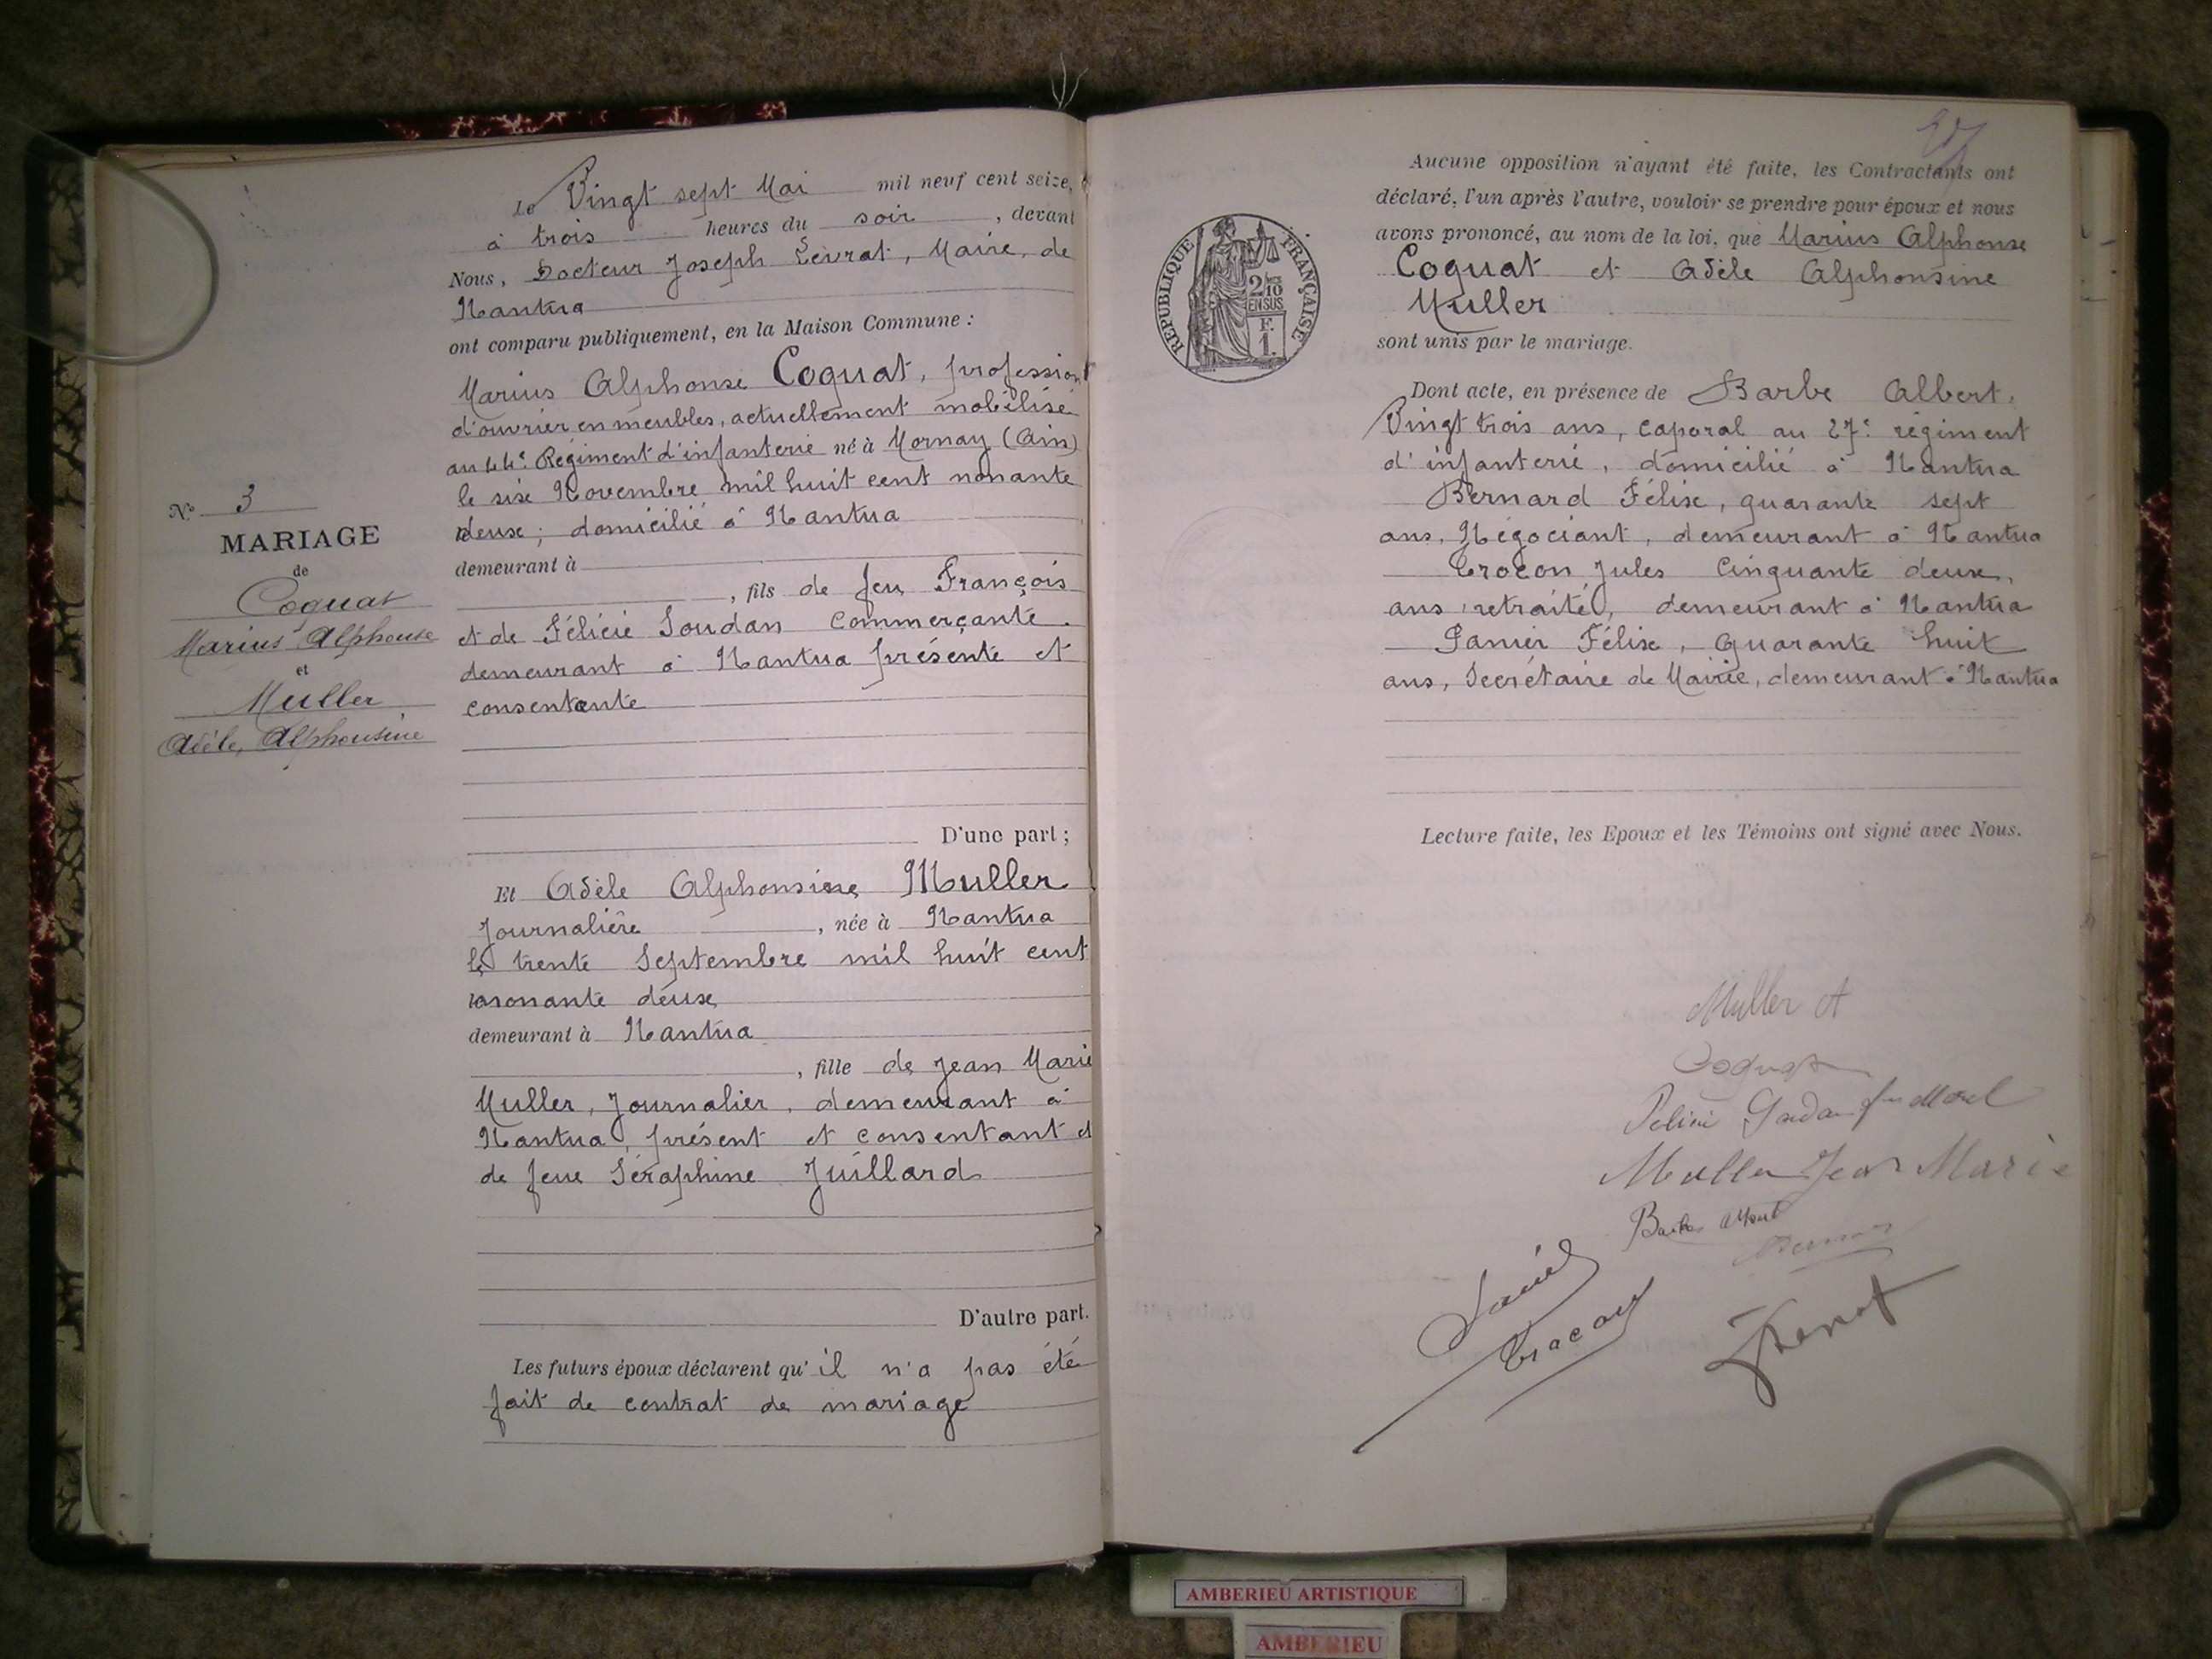 Le Vingt sept Mai mil neuf cent seize,
à trois heures du soir, devant
Nous, Docteur Joseph Levrat, Maire, de
Nantua
ont comparu publiquement, en la Maison Commune :
Marius Alphonse Coquat, profession
d'ouvrier en meubles, actuellement mobilisé
au 44e Régiment d'infanterie né à Mornay (Ain)
le six Novembre mil huit cent nonante
deux; domicilié à Nantua
demeurant à
, fils de feu François
et de Félicie Soudan Commerçante
demeurant à Nantua présente et
consentante
D'une part ;
N° 3
MARIAGE
de
Coquat
Marius Alphonse
et
Muller
Adèle, Alphonsine
Et Adèle Alphonsine Muller
Journalière, née à Nantua
le trente Septembre mil huit cent
nonante deux
demeurant à Nantua
, fille de Jean Marie
Muller, Journalier, demeurant à
Nantua, présent et consentant et
de feue Séraphine Juillard
D'autre part.
Les futurs époux déclarent qu'il n'a pas été
fait de contrat de mariage
Aucune opposition n'ayant été faite, les Contractants ont
déclaré, l'un après l'autre, vouloir se prendre pour époux et nous
avons prononcé, au nom de la loi, que Marius Alphonse
Coquat et Adèle Alphonsine
Muller
sont unis par le mariage.
REPUBLIQUE FRANÇAISE
2/10
EN SUS
F.
1.
Dont acte, en présence de Barbe Albert,
Vingt trois ans, caporal au 27e régiment
d'infanterie, domicilié à Nantua
Bernard Félix, quarante sept
ans, Négociant, demeurant à Nantua
Jules Cinquante deux,
ans, retraité, demeurant à Nantua
Félix, Quarante huit
ans, Secrétaire de Mairie, demeurant à Nantua
Lecture faite, les Epoux et les Témoins ont signé avec Nous.
Muller A
Coquat
Muller Jean Marie
AMBERIEU ARTISTIQUE
AMBERIEU